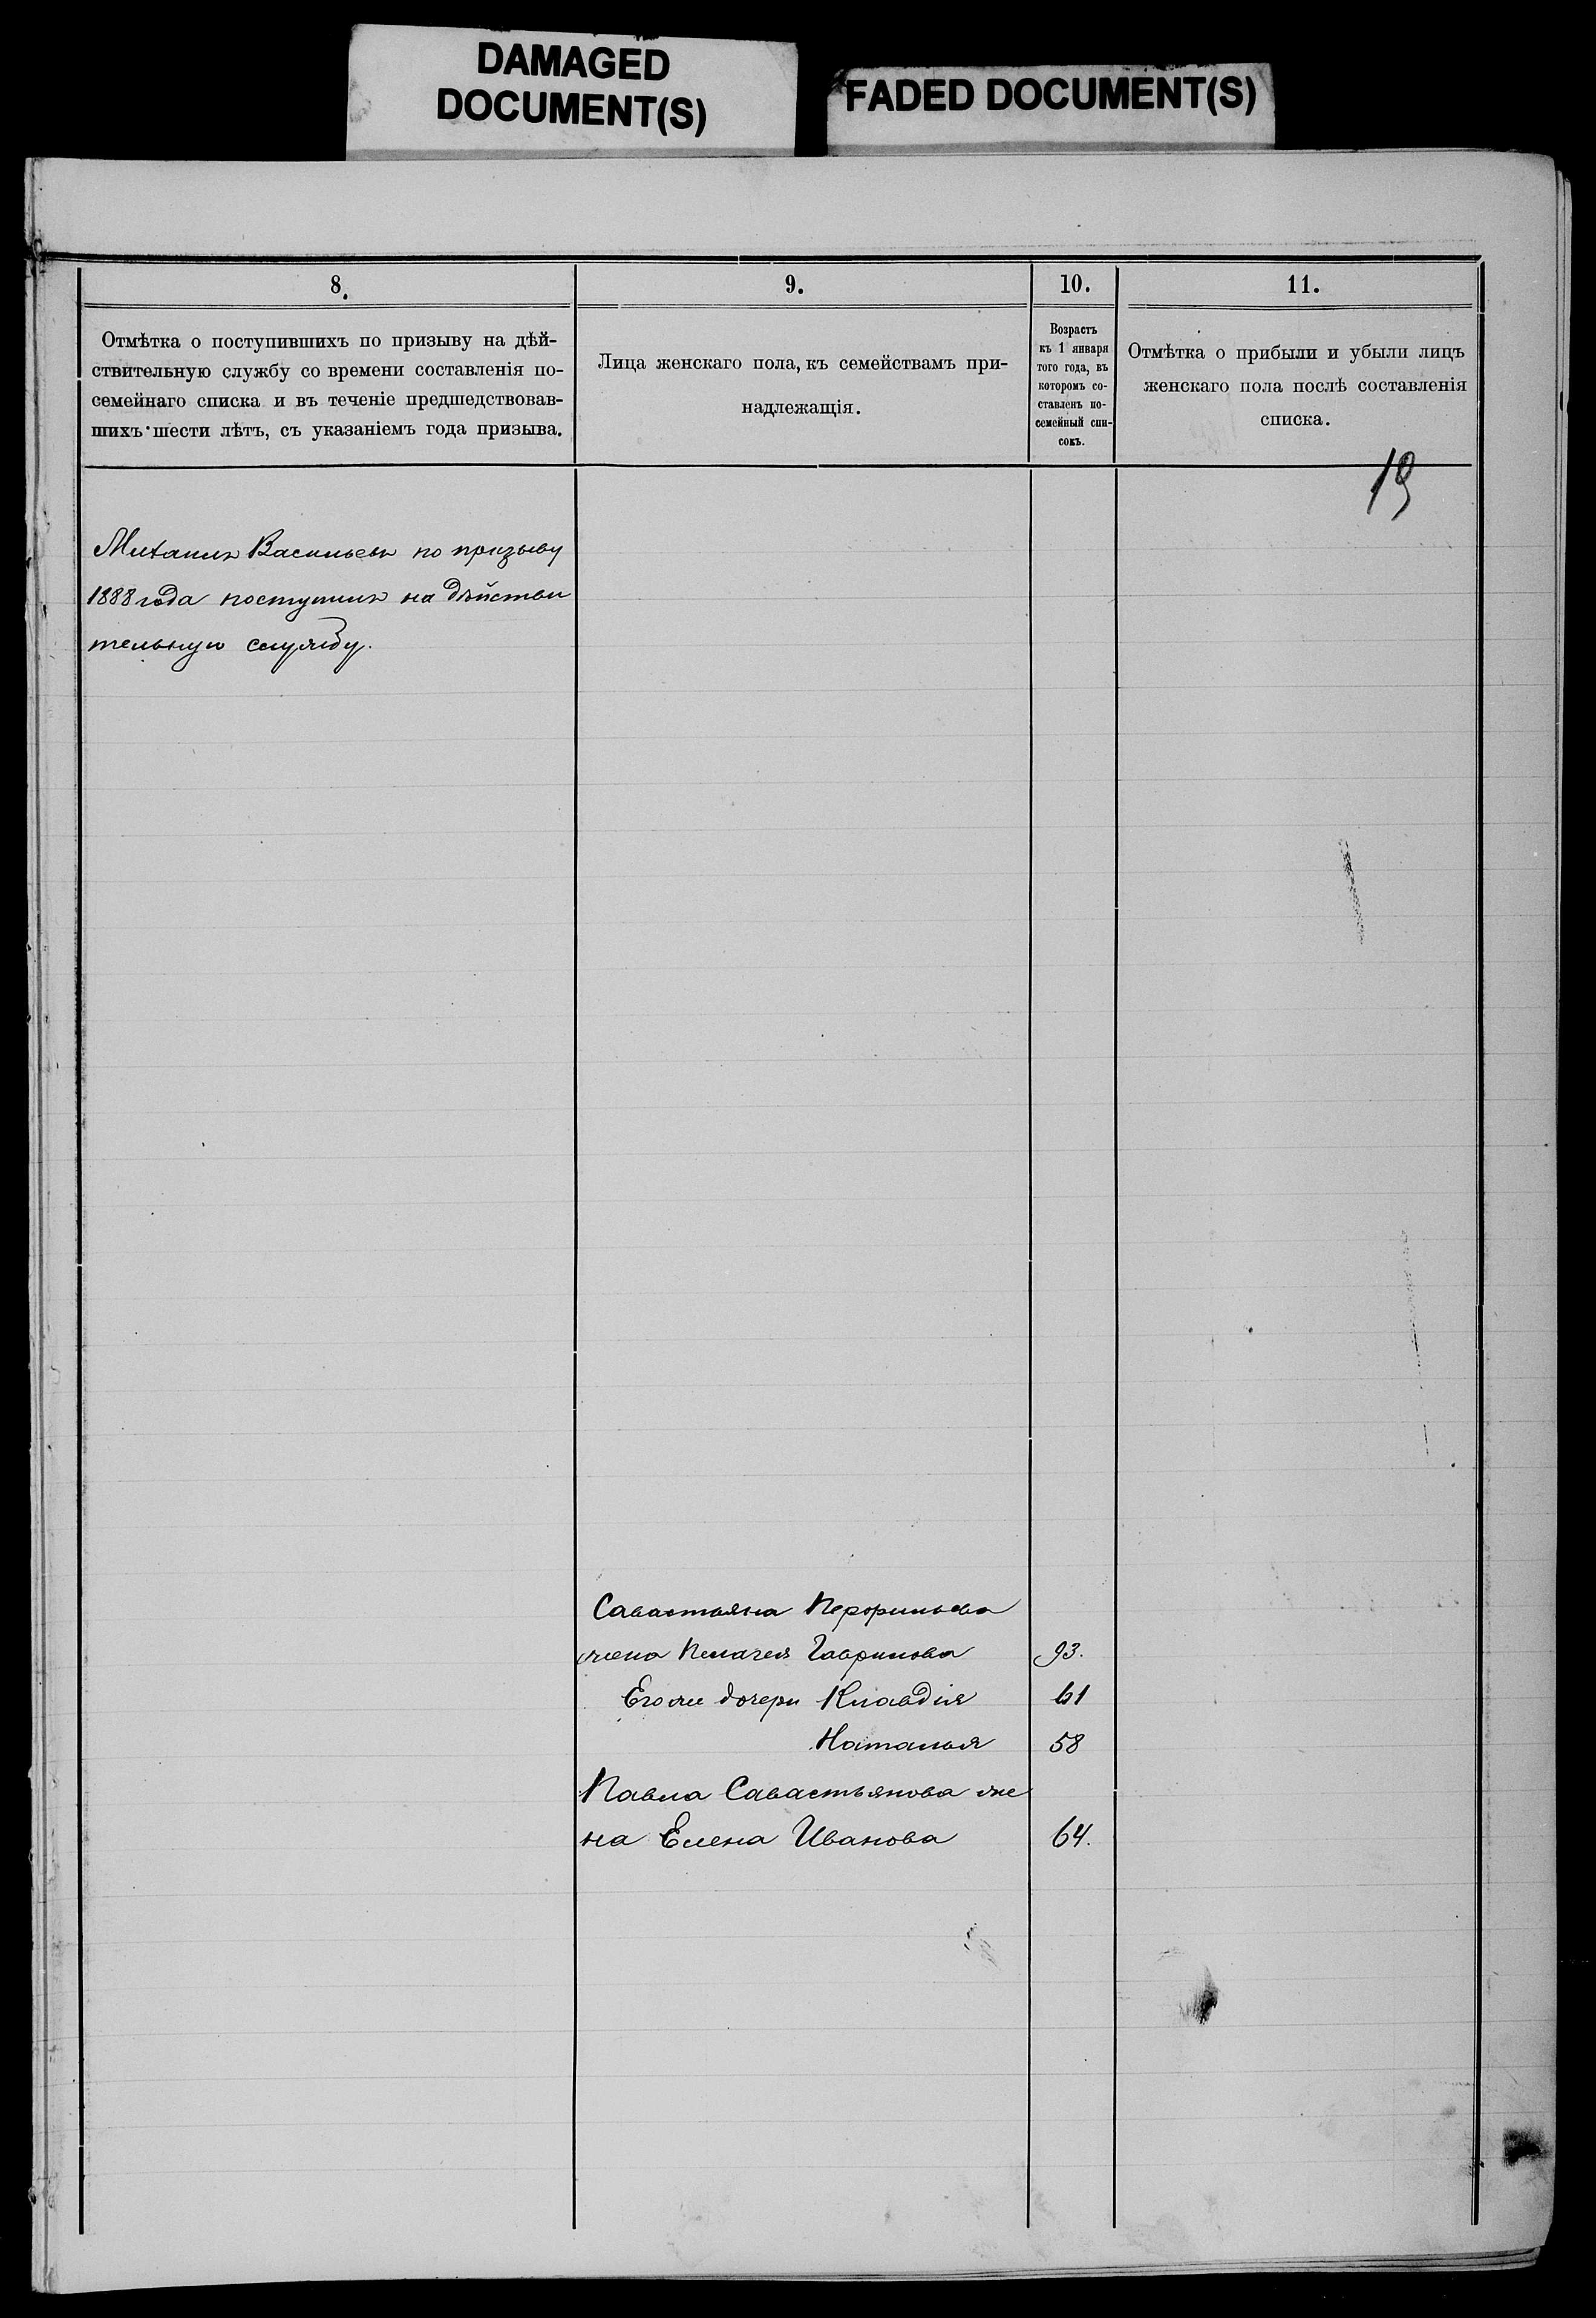 DAMAGED
DOCUMENT(S)
FADED DOCUMENT(S)
8.
9.
10.
11.
Отмѣтка о поступившихъ по призыву на дѣй-
ствительную службу со времени составленія по-
семейнаго списка и въ теченіе предшедствовав-
шихъ шести лѣтъ, съ указаніемъ года призыва.
Лица женскаго пола, къ семействамъ при-
надлежащія.
Возрастъ
къ 1 января
того года, въ
которомъ со-
ставленъ по-
семейный спи-
сокъ.
Отмѣтка о прибыли и убыли лицъ
женскаго пола послѣ составленія
списка.
19
Михаилъ Васильевъ по призыву
1888 года поступилъ на дѣйстви
тельную службу.
Савастьяна Перфильева
жена Пелагея Гаврилова 93.
Его же дочери Клавдія 61
Наталья 58
Павла Савастьянова же
на Елена Иванова 64.